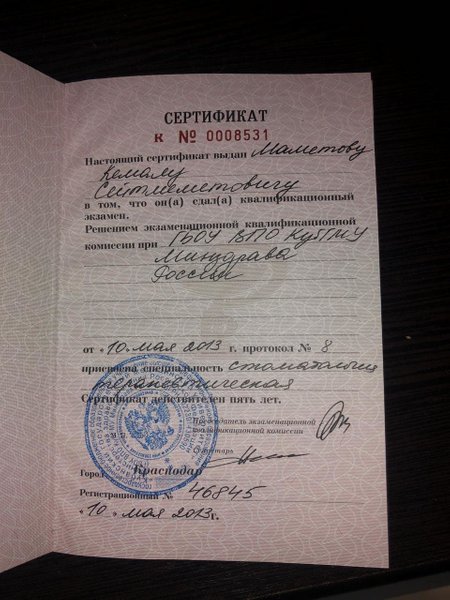 СЕРТИФИКАТ
К № 0008531
Настоящий сертификат выдан Маметову
Кемалу
Сейтмеметовичу
в том, что он(а) сдал(а) квалификационный
экзамен.
Решением экзаменационной квалификационной
комиссии при ГБОУ ВПО КубГМУ
Минздрава
России
от «10» мая 2013 г. протокол № 8
присвоена специальность стоматология
терапевтическая
Сертификат действителен пять лет.
Председатель экзаменационной
квалификационной комиссии
Город Краснодар
Регистрационный № 46845
«10» мая 2013г.